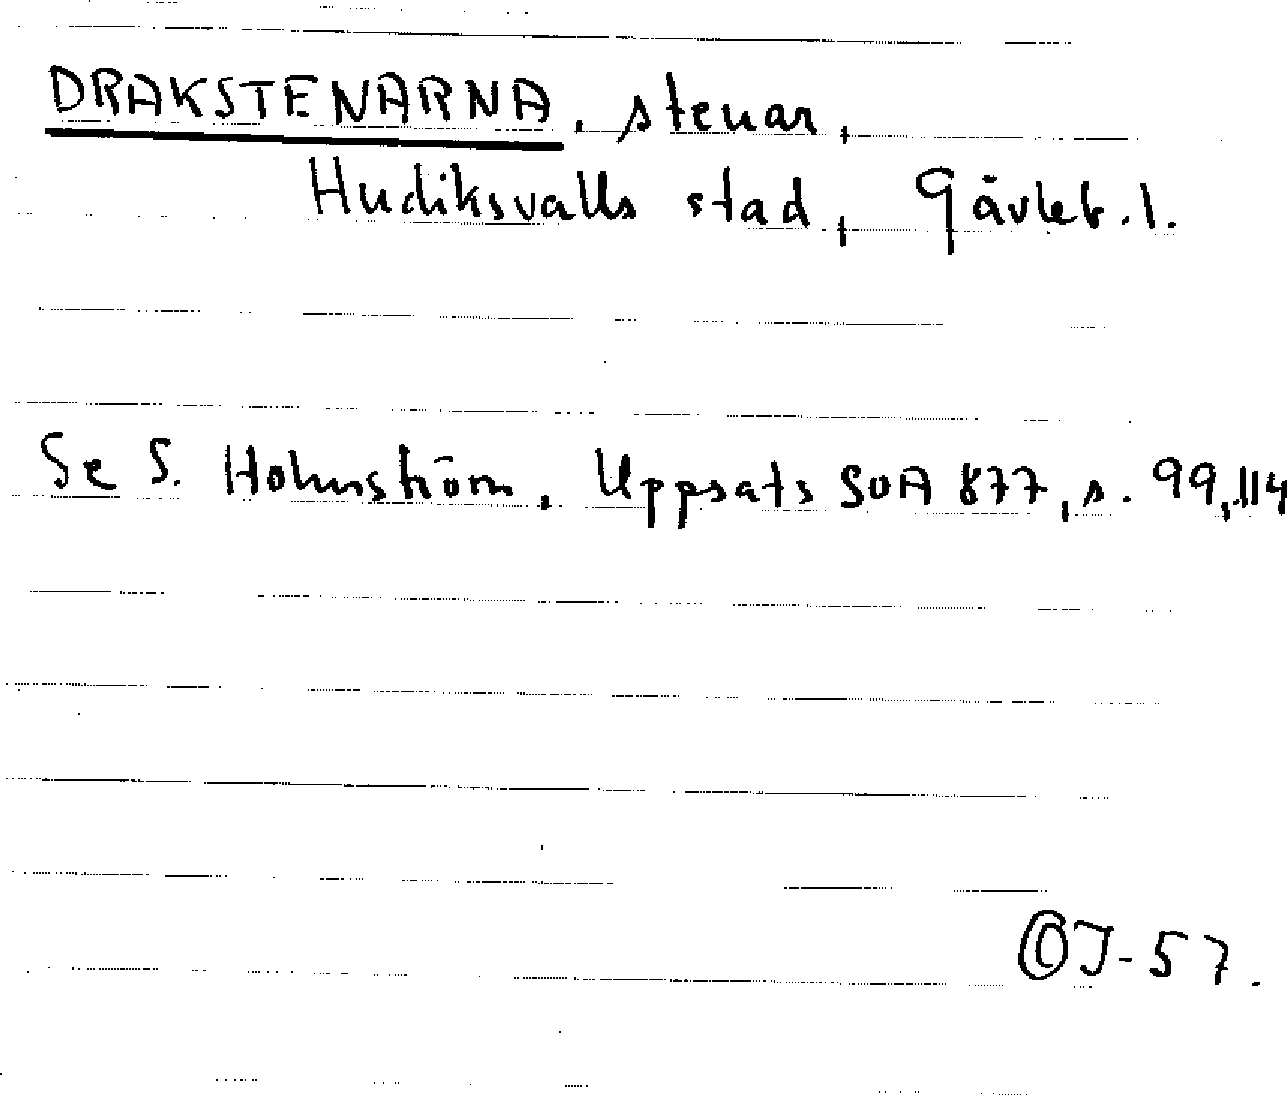 DRAKSTENARNA, stenar,
Hudiksvalls stad, Gävleb. l.
Se S. Holmström, Uppsats SOA 877, s. 99, 114
OJ-57.